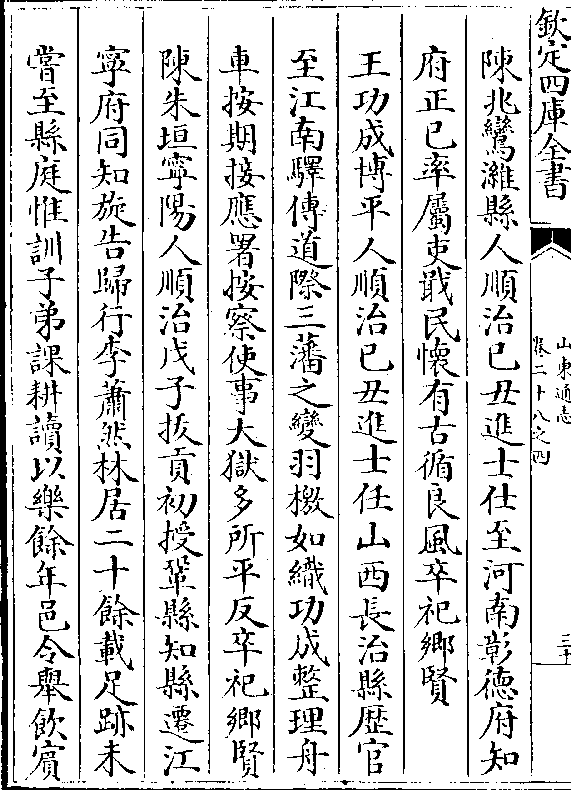 欽定四庫全書
山東通志
卷二十八之四
三十
陳兆鸞濰縣人順治己丑進士仕至河南彰德府知
府正已率屬吏戢民懷有古循良風卒祀鄉賢
王功成博平人順治己丑進士任山西長治縣歴官
至江南驛傳道際三藩之變羽檄如織功成整理舟
車按期接應署按察使事大獄多所平反卒祀鄉賢
陳朱垣寧陽人順治戊子拔貢初授鞏縣知縣遷江
寧府同知旋告歸行李蕭然林居二十餘載足跡未
嘗至縣庭惟訓子弟課耕讀以樂餘年邑令舉飲賔